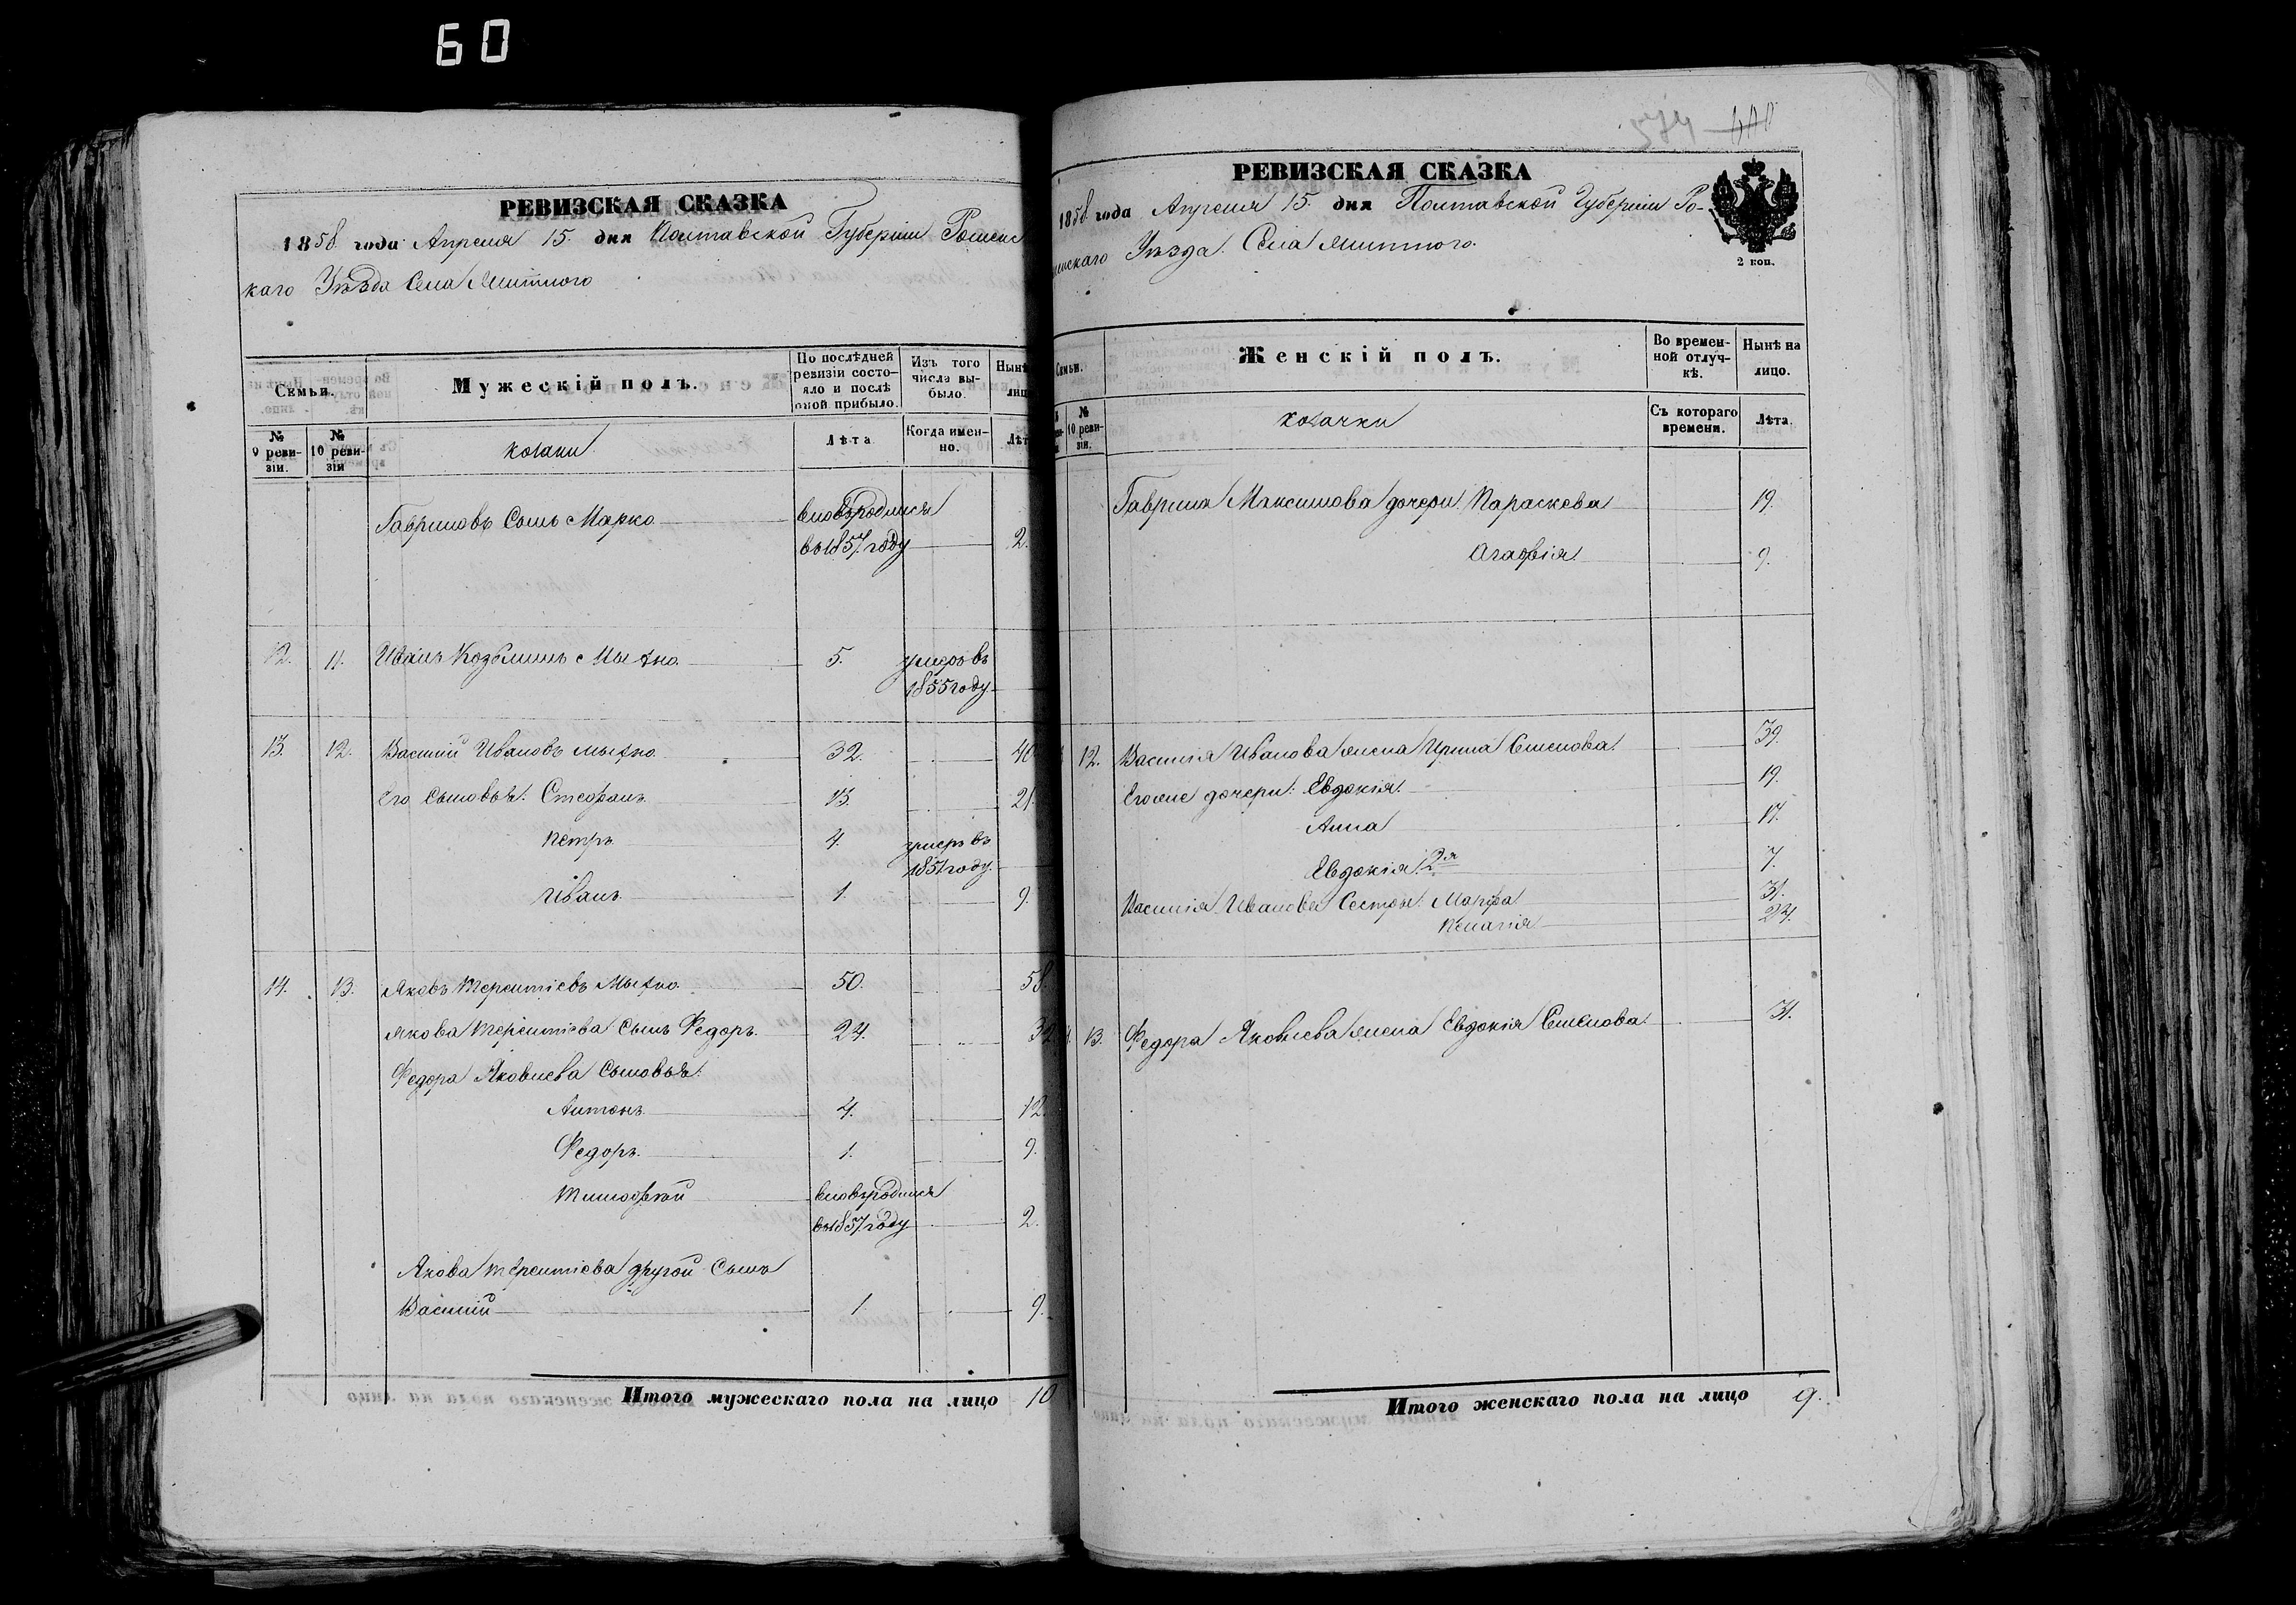 60
РЕВИЗСКАЯ СКАЗКА
1858 года Апреля 15. дня Полтавской Губернии Роменс
каго Уѣзда Села Липового
Семьи.
Мужескій полъ.
По послѣдней ревизіи состояло и послѣ оной прибыло.
Изъ того числа выбыло.
Нынѣ лиц
№ 9 ревизіи.
№ 10 ревизіи
козаки
Лѣта
Когда именно.
Лѣт
Гавриловъ Сынъ Марко
вновь родился
въ 1857 году
2.
12. 11. Иванъ Козьминъ
5. умеръ въ
1855 году
13. 12. Василій Ивановъ
32. 40
Его Сыновья: Стефанъ 13. 21.
Петръ 4. умеръ въ
1851 году
Иванъ 1. 9.
14. 13. Яковъ Терентіевъ
50. 58.
Якова Терентіева Сынъ Федоръ 24. 32
Федора Яковлева Сыновья:
Антонъ 4. 12
Федоръ 1. 9.
Тимофей вновь родился
въ 1857 году 2.
Якова Терентіева другой Сынъ
Василій 1 9.
Итого мужескаго пола на лицо 10
574 600
РЕВИЗСКАЯ СКАЗКА
1858 года Апреля 15. дня Полтавской Губерніи Ро-
менскаго Уѣзда. Села Липового.
2 коп.
Семьи.
Женскій полъ.
Во временной отлучкѣ.
Нынѣ на лицо.
№ 10 ревизіи.
козачки
Съ котораго времени.
Лѣта.
Гаврила Максимова дочери Параскева 19.
Агафія 9.
12. Василія Иванова жена Ирина Семенова 39.
Егоже дочери: Евдокія 19.
Анна 17.
Евдокія 2я 7.
Василія Иванова Сестры: Марфа 31.
Пелагія 24.
13. Федора Яковлева жена Евдокія Семенова 31.
Итого женскаго пола на лицо 9.